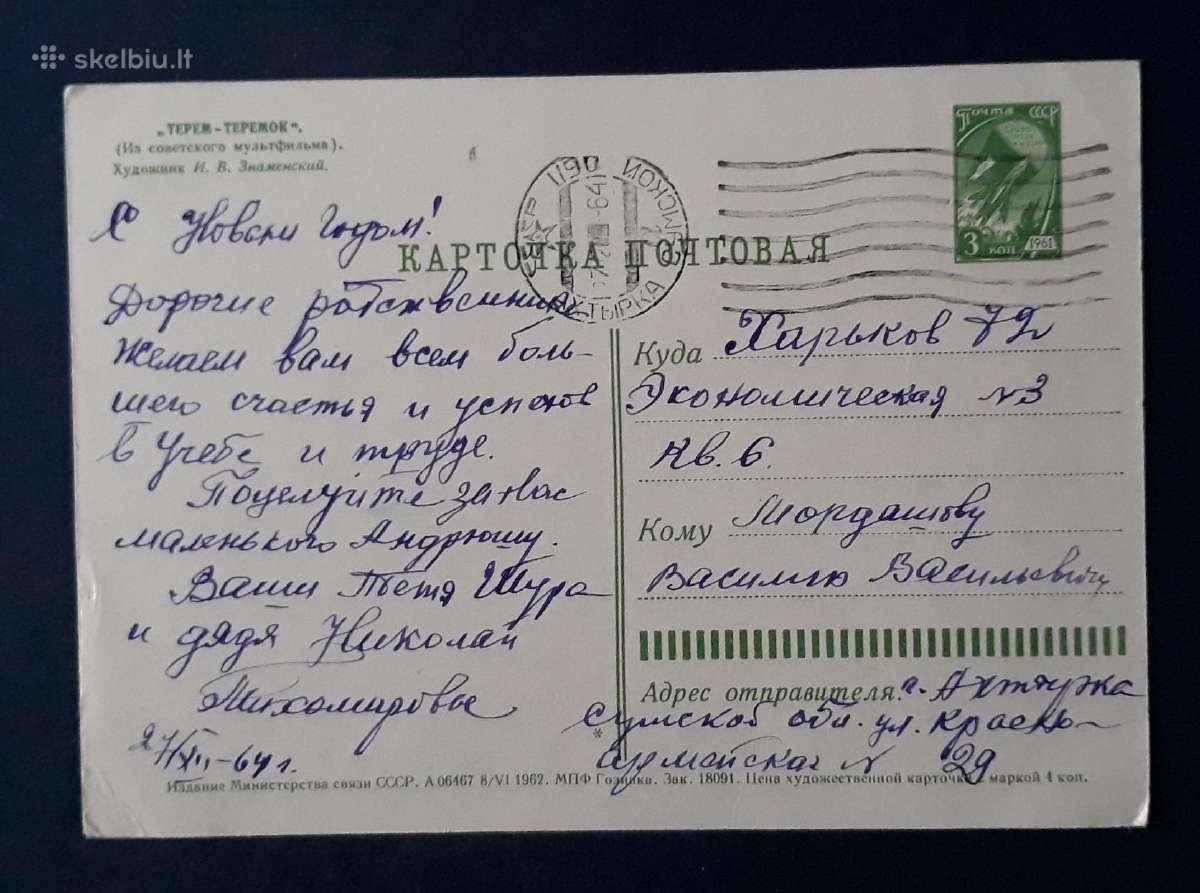 skelbiu.lt
„ТЕРЕМ-ТЕРЕМОК".
(Из советского мультфильма).
Художник И. В. Знаменский.
С Новым Годом!
Дорогие родственники
Желаем вам всем боль-
шего счастья и успехов
в учебе и труде.
Поцелуйте за нас
маленького Андрюшу.
Ваши тетя Шура
и дядя Николай
Тихомировы
27/XII-64 г.
КАРТОЧКА ПОЧТОВАЯ
АХТЫРКА СУМСКОЙ ОБЛ
Почта СССР
3 коп
1961
Куда Харьков 72
Экономическая №3
кв. 6.
Кому Мордашову
Василию Васильевичу
Адрес отправителя: г. Ахтырка
Сумской обл. ул. Красно-
армейская № 29
Издание Министерства связи СССР. А 06467 8/VI 1962. МПФ Гознака. Зак. 18091. Цена художественной карточки с маркой 4 коп.